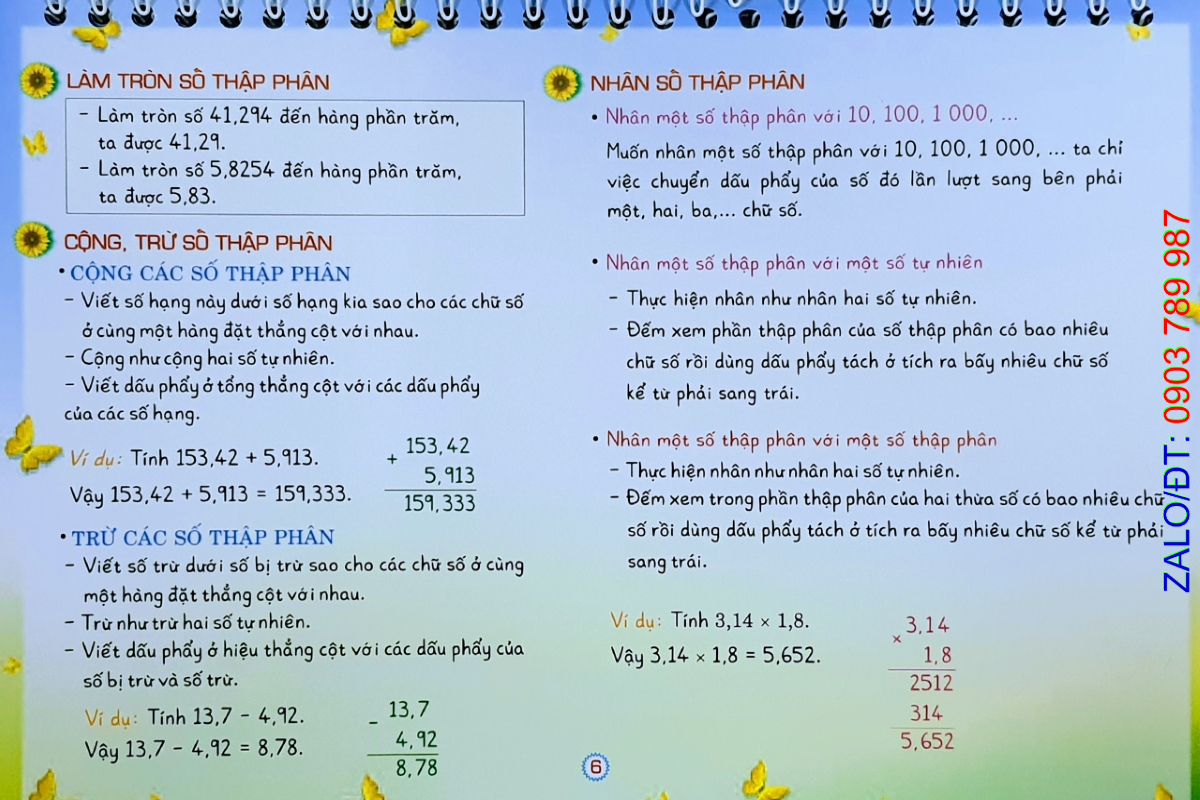 LÀM TRÒN SỐ THẬP PHÂN
– Làm tròn số 41,294 đến hàng phần trăm,
ta được 41,29.
– Làm tròn số 5,8254 đến hàng phần trăm,
ta được 5,83.
CỘNG, TRỪ SỐ THẬP PHÂN
• CỘNG CÁC SỐ THẬP PHÂN
– Viết số hạng này dưới số hạng kia sao cho các chữ số
ở cùng một hàng đặt thẳng cột với nhau.
– Cộng như cộng hai số tự nhiên.
– Viết dấu phẩy ở tổng thẳng cột với các dấu phẩy
của các số hạng.
Ví dụ: Tính 153,42 + 5,913.
Vậy 153,42 + 5,913 = 159,333.
153,42
+
5,913
159,333
• TRỪ CÁC SỐ THẬP PHÂN
– Viết số trừ dưới số bị trừ sao cho các chữ số ở cùng
một hàng đặt thẳng cột với nhau.
– Trừ như trừ hai số tự nhiên.
– Viết dấu phẩy ở hiệu thẳng cột với các dấu phẩy của
số bị trừ và số trừ.
Ví dụ: Tính 13,7 – 4,92.
Vậy 13,7 – 4,92 = 8,78.
13,7
–
4,92
8,78
NHÂN SỐ THẬP PHÂN
• Nhân một số thập phân với 10, 100, 1 000, ...
Muốn nhân một số thập phân với 10, 100, 1 000, ... ta chỉ
việc chuyển dấu phẩy của số đó lần lượt sang bên phải
một, hai, ba,... chữ số.
• Nhân một số thập phân với một số tự nhiên
– Thực hiện nhân như nhân hai số tự nhiên.
– Đếm xem phần thập phân của số thập phân có bao nhiêu
chữ số rồi dùng dấu phẩy tách ở tích ra bấy nhiêu chữ số
kể từ phải sang trái.
• Nhân một số thập phân với một số thập phân
– Thực hiện nhân như nhân hai số tự nhiên.
– Đếm xem trong phần thập phân của hai thừa số có bao nhiêu chữ
số rồi dùng dấu phẩy tách ở tích ra bấy nhiêu chữ số kể từ phải
sang trái.
Ví dụ: Tính 3,14 × 1,8.
Vậy 3,14 × 1,8 = 5,652.
3,14
×
1,8
2512
314
5,652
6
ZALO/ĐT: 0903 789 987